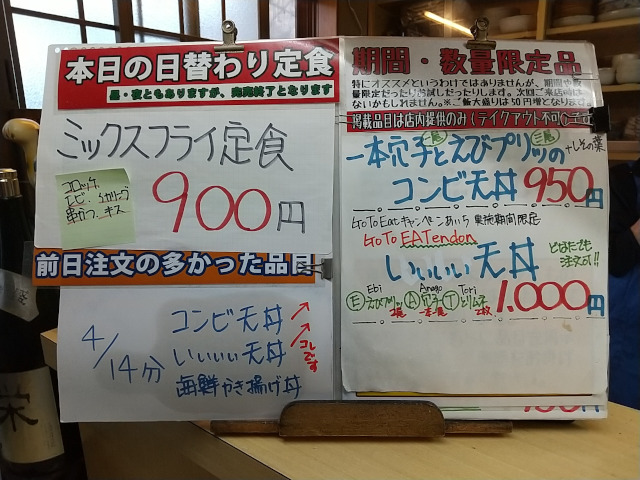 本日の日替わり定食
昼・夜ともありますが、完売終了となります
ミックスフライ定食
コロッケ
エビ、イカリング
串カツ、キス
900円
前日注文の多かった品目
4/14分
コンビ天丼
いいいい天丼
海鮮かき揚げ丼
コレです
期間・数量限定品
特にオススメというわけではありませんが、期間や数
量限定だったりお試しだったりします。次回ご来店時に
ないかもしれません。※ご飯大盛りは50円増となります
掲載品目は店内提供のみ(テイクアウト不可)です
一本穴子とえびプリッの
一尾
三尾
+しその葉
コンビ天丼 950円
GoToEatキャンペーンあいち 実施期間限定
GoTo EATendon
いいいい天丼
どなたでも
注文可!!
Ebi Anago Tori
Eえびプリッ A穴子 Tとりムネ
2尾 一本一尾 2枚
1,000円
栄